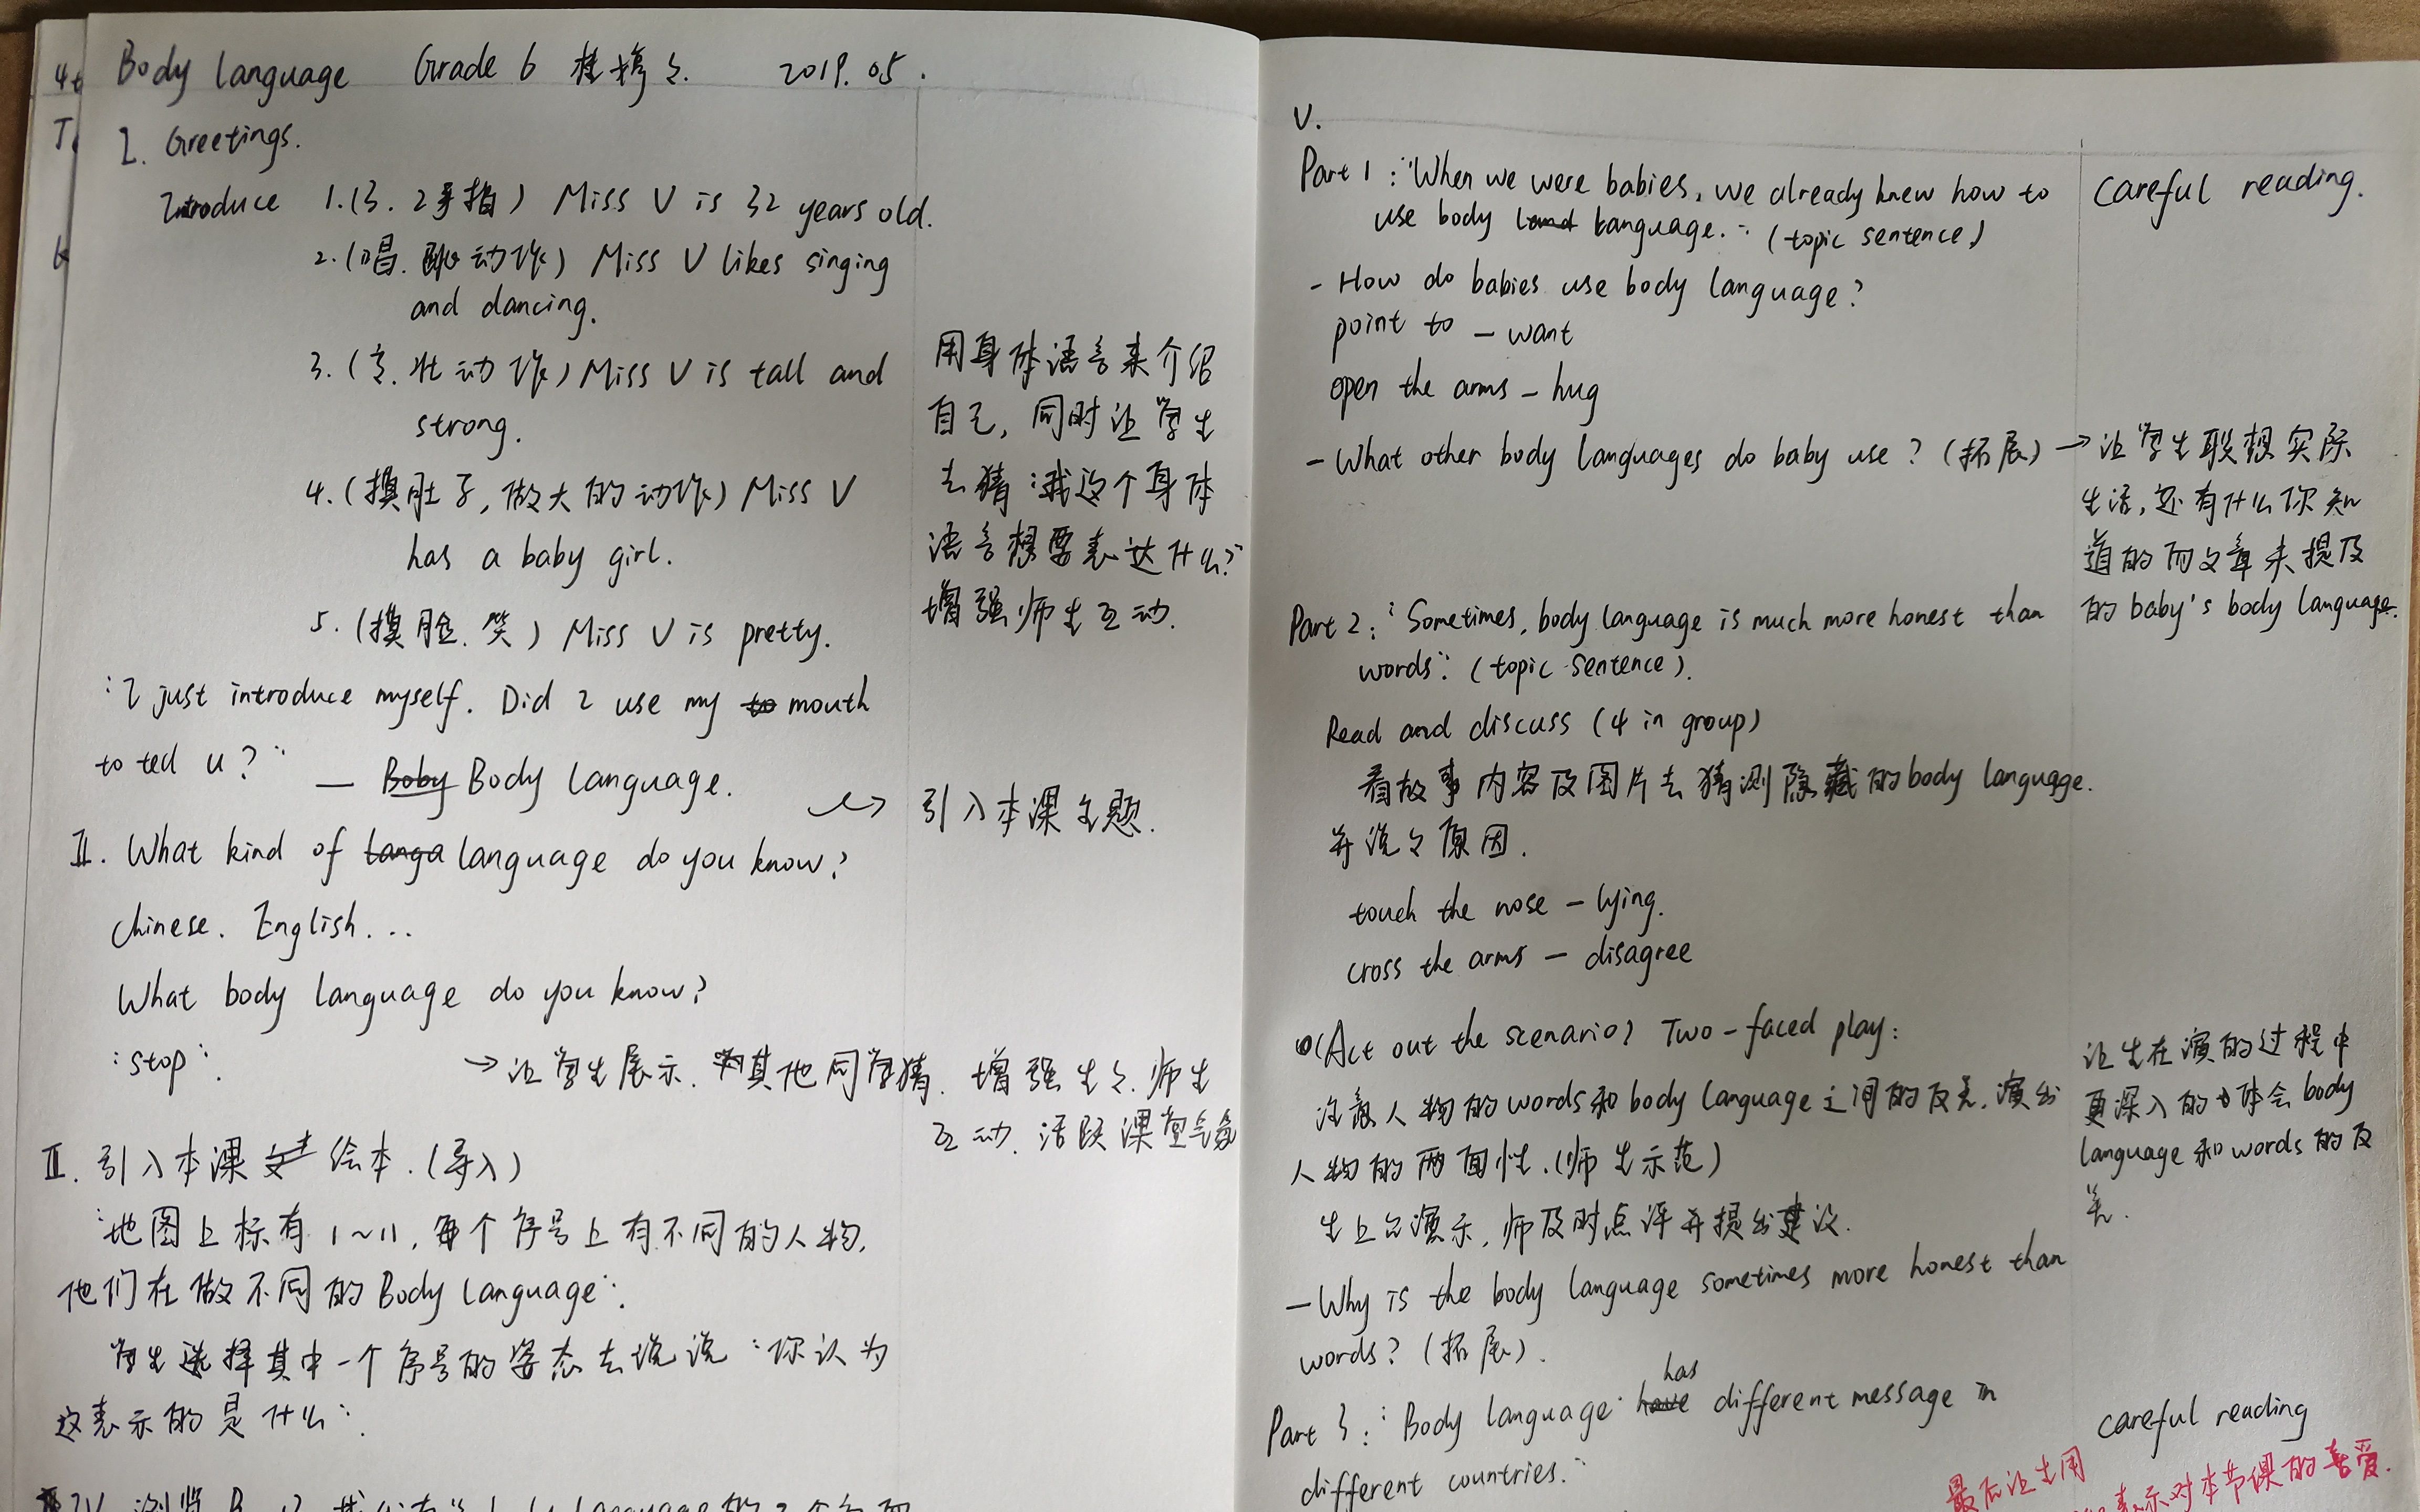 Body language Grade 6 2019.05.
I. Greetings.
Introduce 1.(3.2手指) Miss V is 32 years old.
2.(唱.跳动作) Miss V likes singing
and dancing.
3.(高.壮动作) Miss V is tall and
strong.
4.(摸肚子,做大的动作) Miss V
has a baby girl.
5.(摸脸.笑) Miss V is pretty.
用身体语言来介绍
自己,同时让学生
去猜:"我这个身体
语言想要表达什么?"
增强师生互动.
"I just introduce myself. Did I use my to mouth
to tell u?" — Boby Body language.
→ 引入本课主题.
II. What kind of langa language do you know?
Chinese. English...
What body language do you know?
"stop". →让学生展示.其他同学猜. 增强生生.师生
互动.活跃课堂气氛
III. 引入本课文本绘本.(导入)
"地图上标有1~11,每个序号上有不同的人物,
他们在做不同的Body language".
学生选择其中一个序号的姿态去说说"你认为
这表示的是什么"
IV 浏览
V.
Part 1: "When we were babies, we already knew how to
use body land language." (topic sentence)
careful reading.
- How do babies use body language?
point to - want
open the arms - hug
- What other body languages do baby use? (拓展) →让学生联想实际
生活,还有什么你知
道的而文章未提及
的baby's body language.
Part 2: "Sometimes, body language is much more honest than
words". (topic sentence).
Read and discuss (4 in group)
看故事内容及图片去猜测隐藏的body language.
并说出原因.
touch the nose - lying.
cross the arms - disagree
(Act out the scenario) Two-faced play:
注意人物的words和body language之间的反差,演出
人物的两面性.(师生示范)
生上台演示,师及时点评并提出建议.
让生在演的过程中
更深入的体会body
language和words的反
差.
- Why is the body language sometimes more honest than
words? (拓展).
Part 3: "Body language have has different message in
different countries."
careful reading
最后让生用
表示对本节课的喜爱.